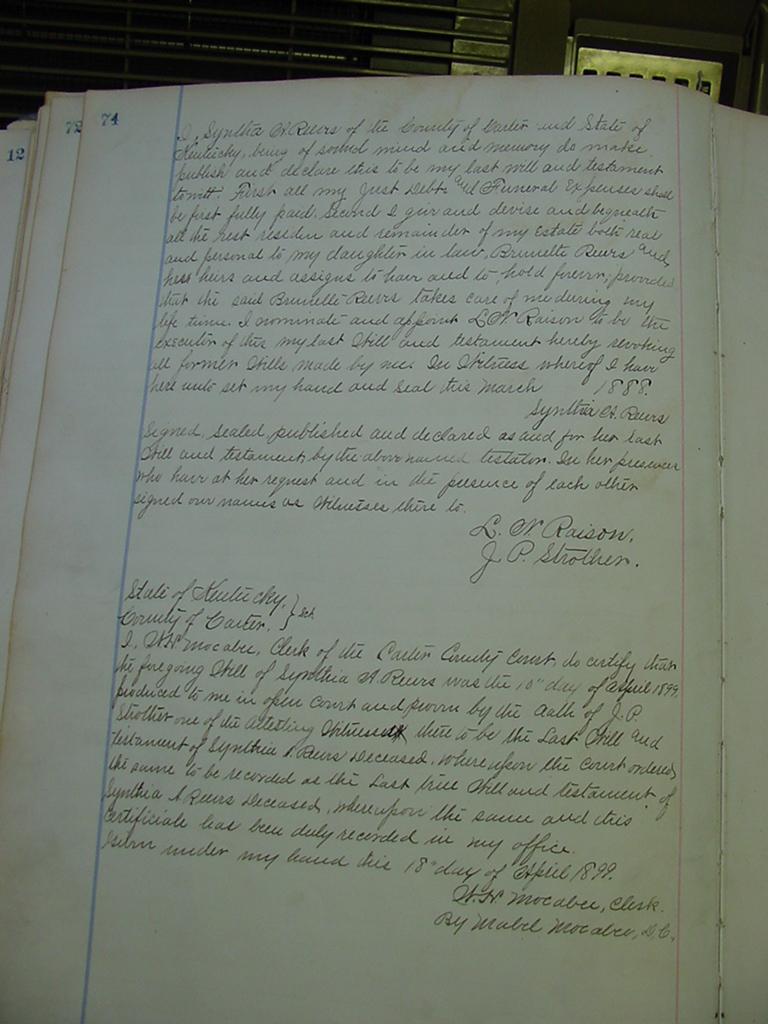 12
72
74
I, Synthia A. Reeves of the County of Carter and State of
Kentucky, being of sound mind and memory do make
publish and declare this to be my last will and testament
towitt. First all my Just Debts and Funeral Expenses shall
be first fully paid. Second I give and devise and bequeath
all the rest residue and remainder of my Estate both real
and personal to my daughter in law, Brunette Reeves and
her heirs and assigns to have and to hold forever; provided
that the said Brunette Reeves takes care of me during my
life time. I nominate and appoint L. N. Raison to be the
executor of this my last Will and testament hereby revoking
all former Wills made by me. In Witness whereof I have
here unto set my hand and Seal this March 1888.
Synthia A. Reeves
Signed, Sealed, published and declared as and for her Last
Will and testament, by the above named testator. In her presence
who have at her request and in the presence of each other
signed our names as Witnesses there to.
L. N. Raison,
J. P. Strother.
State of Kentucky, }
County of Carter. } Sct.
I, W. N. Mocabee, Clerk of the Carter County Court, do certify that
the foregoing Will of Synthia A Reeves was the 10" day of April 1899,
produced to me in open Court and proven by the Oath of J. P.
Strother one of the Attesting Witness there to be the Last Will and
testament of Synthia A. Reeves Deceased, where upon the Court ordered
the same to be recorded as the Last true Will and testament of
Synthia A Reeves Deceased, where upon the same and this
Certificiate has been duly recorded in my office.
Given under my hand this 18" day of April 1899.
W. N. Mocabee, Clerk.
By Mabel Mocabee, D. C.